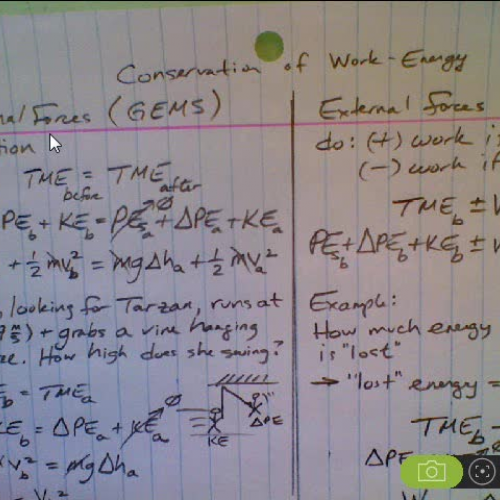 Conservation of Work-Energy
nal Forces (GEMS)
tion
TME_before = TME_after
PE_b + KE_b = PE_sa + ΔPE_a + KE_a
+ 1/2 mv_b² = mgΔh_a + 1/2 mv_a²
, looking for Tarzan, runs at
m/s) + grabs a vine hanging
ze. How high does she swing?
E_b = TME_a
KE_b = ΔPE_a + KE_a
KE
ΔPE
v_b² = mgΔh_a
External Forces
do: (+) work i
(-) work if
TME_b ±
PE_sb + ΔPE_b + KE_b ±
Example:
How much energy
is "lost"
→ "lost" energy =
TME_b -
ΔPE